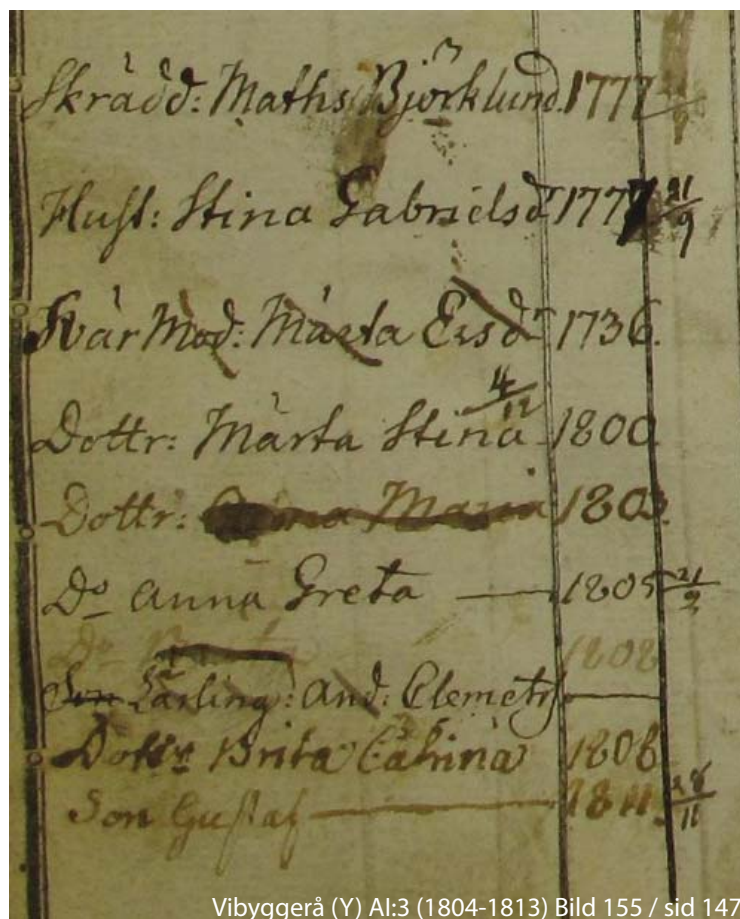 Skrädd: Maths Björklund. 1777
Hust: Stina Gabrielsdr 1777 21/9
Svär Mod: Märta Ersdr 1736.
4/12
Dottr: Märta Stina 1800
Dottr: Maria 1803.
Do Anna Greta — 1805 21/2
Do 1808
Son Lärling: And: Clemets —
Dottr Brita Catrina 1808
Son Gustaf — 1811. 28/11
Vibyggerå (Y) AI:3 (1804-1813) Bild 155 / sid 147